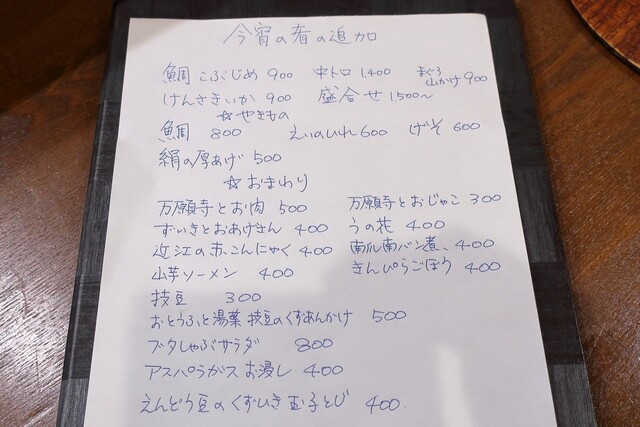 今宵の肴の追加
鯛こぶじめ 900 中トロ 1,400 まぐろ山かけ 900
けんさきいか 900 盛合せ 1,500〜
☆やきもの
鯛 800 えいのひれ 600 げそ 600
絹の厚あげ 500
☆おまわり
万願寺とお肉 500 万願寺とおじゃこ 300
ずいきとおあげさん 400 うの花 400
近江の赤こんにゃく 400 南瓜南バン煮 400
山芋ソーメン 400 きんぴらごぼう 400
枝豆 300
おとうふと湯葉 枝豆のくずあんかけ 500
ブタしゃぶサラダ 800
アスパラガスお浸し 400
えんどう豆のくずひき玉子とじ 400